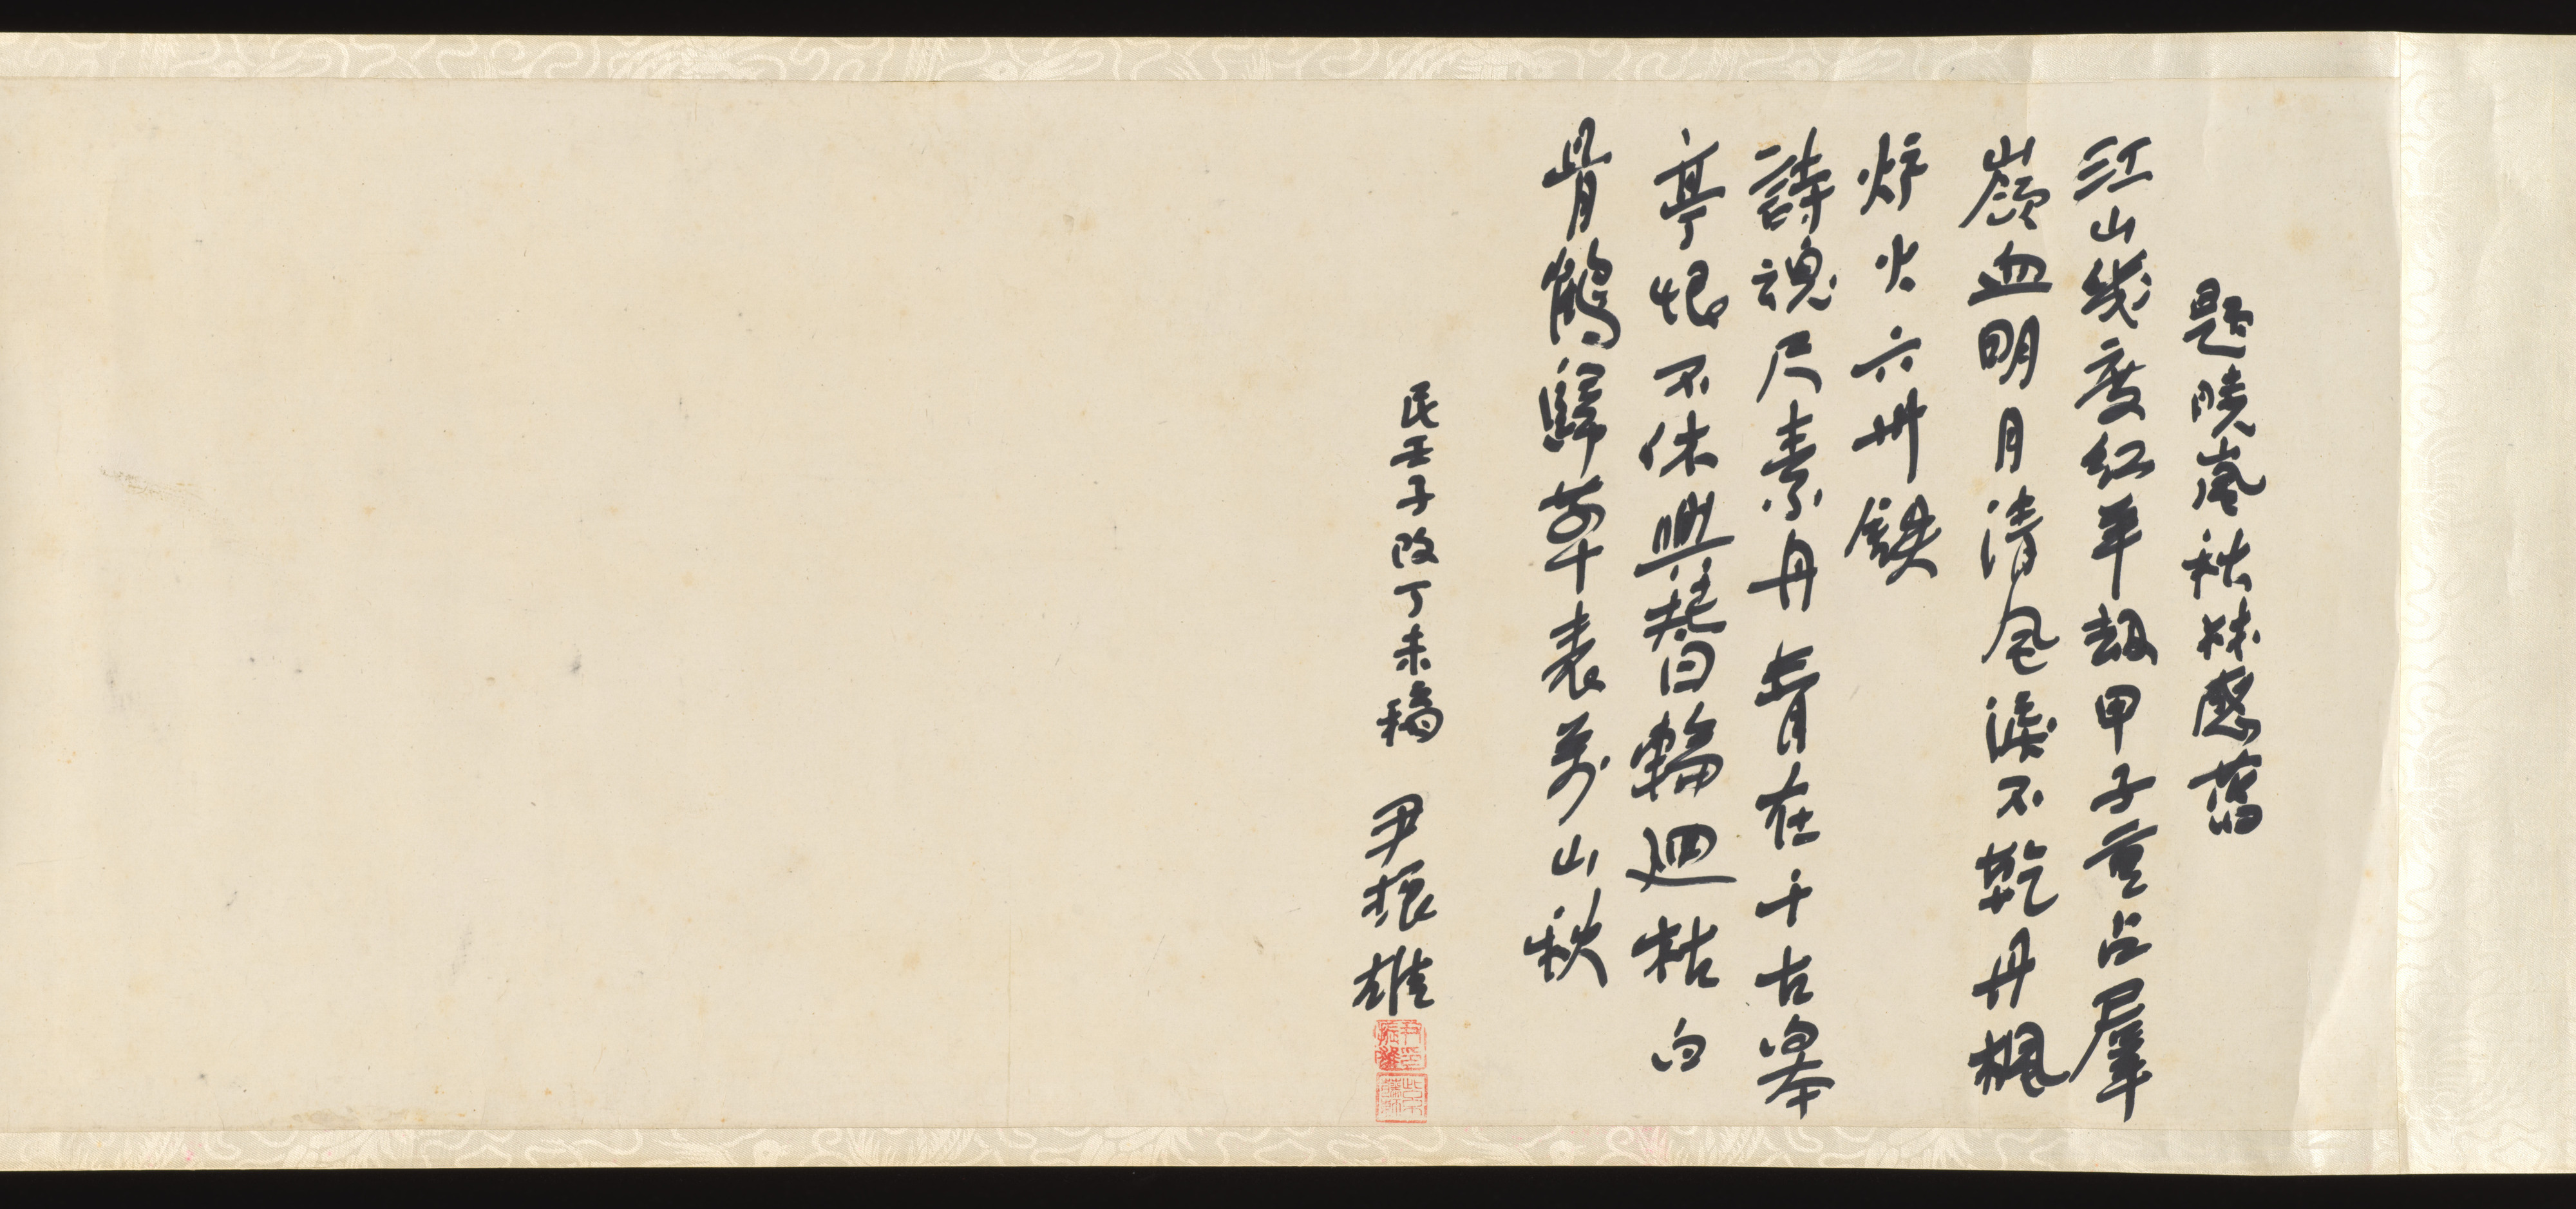 題曉嵐秋林感舊
江山幾度紅羊劫甲子重占羣
嶺血明月清風淚不乾丹楓
炉火六州鐵
詩魂尺素丹青在千古皋
亭恨不休興替輪迴枯白
骨鶴歸華表萬山秋
民壬子改丁未稿 尹振雄
尹振雄印